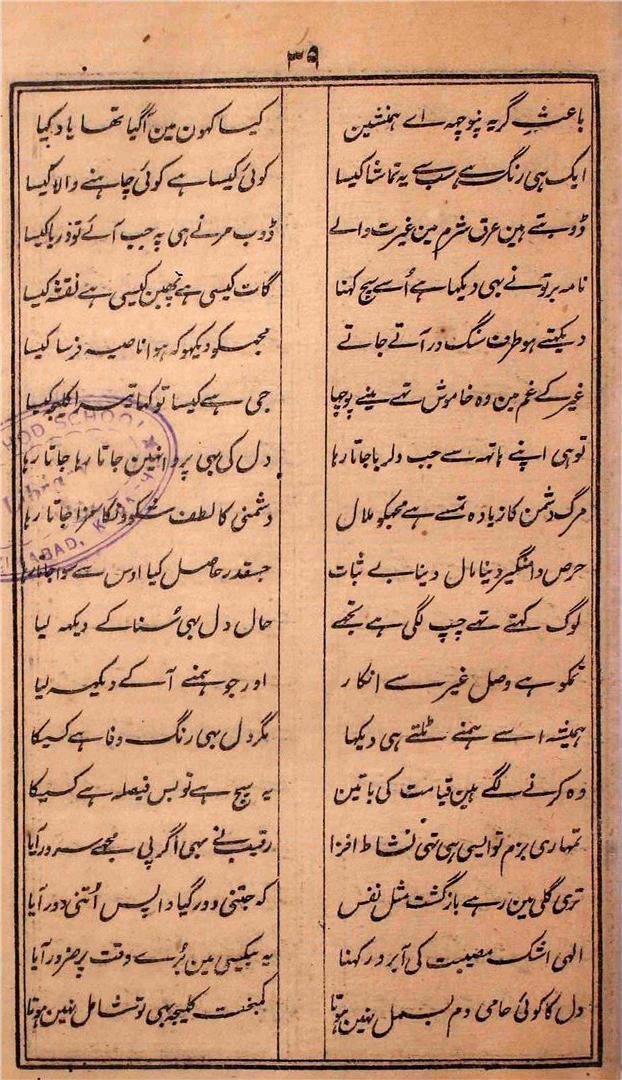 ۳۹
باعثِ گریہ نپوچہہ اے ہمنشین
کیسا کہون مین آگیا تھا یاد کیا
ایک ہی رنگ ہے سب سے یہ تماشا کیسا
کوئی کیسا ہے کوئی چاہنے والا کیسا
ڈوبتے ہین عرق شرم مین غیرت والے
ڈوب مرنے ہی پہ جب آئے تو دریا کیسا
نامہ بر تو نے بہی دیکہا ہے اُسے سچ کہنا
گات کیسی ہے پھبن کیسی ہے نقشہ کیسا
دیکہتے ہو طرف سنگ در آتے جاتے
مجہکو دیکہو کہ ہوا ناصیہ فرسا کیسا
غیر کے غم مین وہ خاموش تہے مینے پوچہا
جی ہے کیسا تو کہا تیرا کلیجہ کیسا
تو ہی اپنے ہاتہہ سے جب دلربا جاتا رہا
دل کی بہی پروا نہین جاتا رہا جاتا رہا
مرگ دشمن کا زیادہ تمسے ہے مجہکو ملال
دشمنی کا لطف شکوونکا مزا جاتا رہا
حرص دامنگیر دینا مال دینا بے ثبات
جسقدر حاصل کیا اوس سے سوا جاتا رہا
لوگ کہتے تہے چپ لگی ہے تجہے
حال دل بہی سُنا کے دیکہہ لیا
تمکو ہے وصل غیر سے انکار
اور جو ہمنے آ کے دیکہہ لیا
ہمیشہ اسے ہمنے ٹلتے ہی دیکہا
مگر دل بہی رنگ وفا ہے کسیکا
وہ کرنے لگے ہین قیامت کی باتین
یہ سچ ہے تو بس فیصلہ ہے کسیکا
تمہاری بزم تو ایسی ہی تہی نشاط افزا
رقیب نے بہی اگر پی مجھے سرور آیا
تری گلی مین رہے بازگشت مثل نفس
کہ جتنی دور گیا واپس اُتنی دور آیا
الہی اشک مصیبت کی آبرو رکہنا
یہ بیکسی مین بُرے وقت پر ضرور آیا
دل کا کوئی حامی دم بسمل نہین ہوتا
کمبخت کلیجہ بہی تو شامل نہین ہوتا
SCHOOL